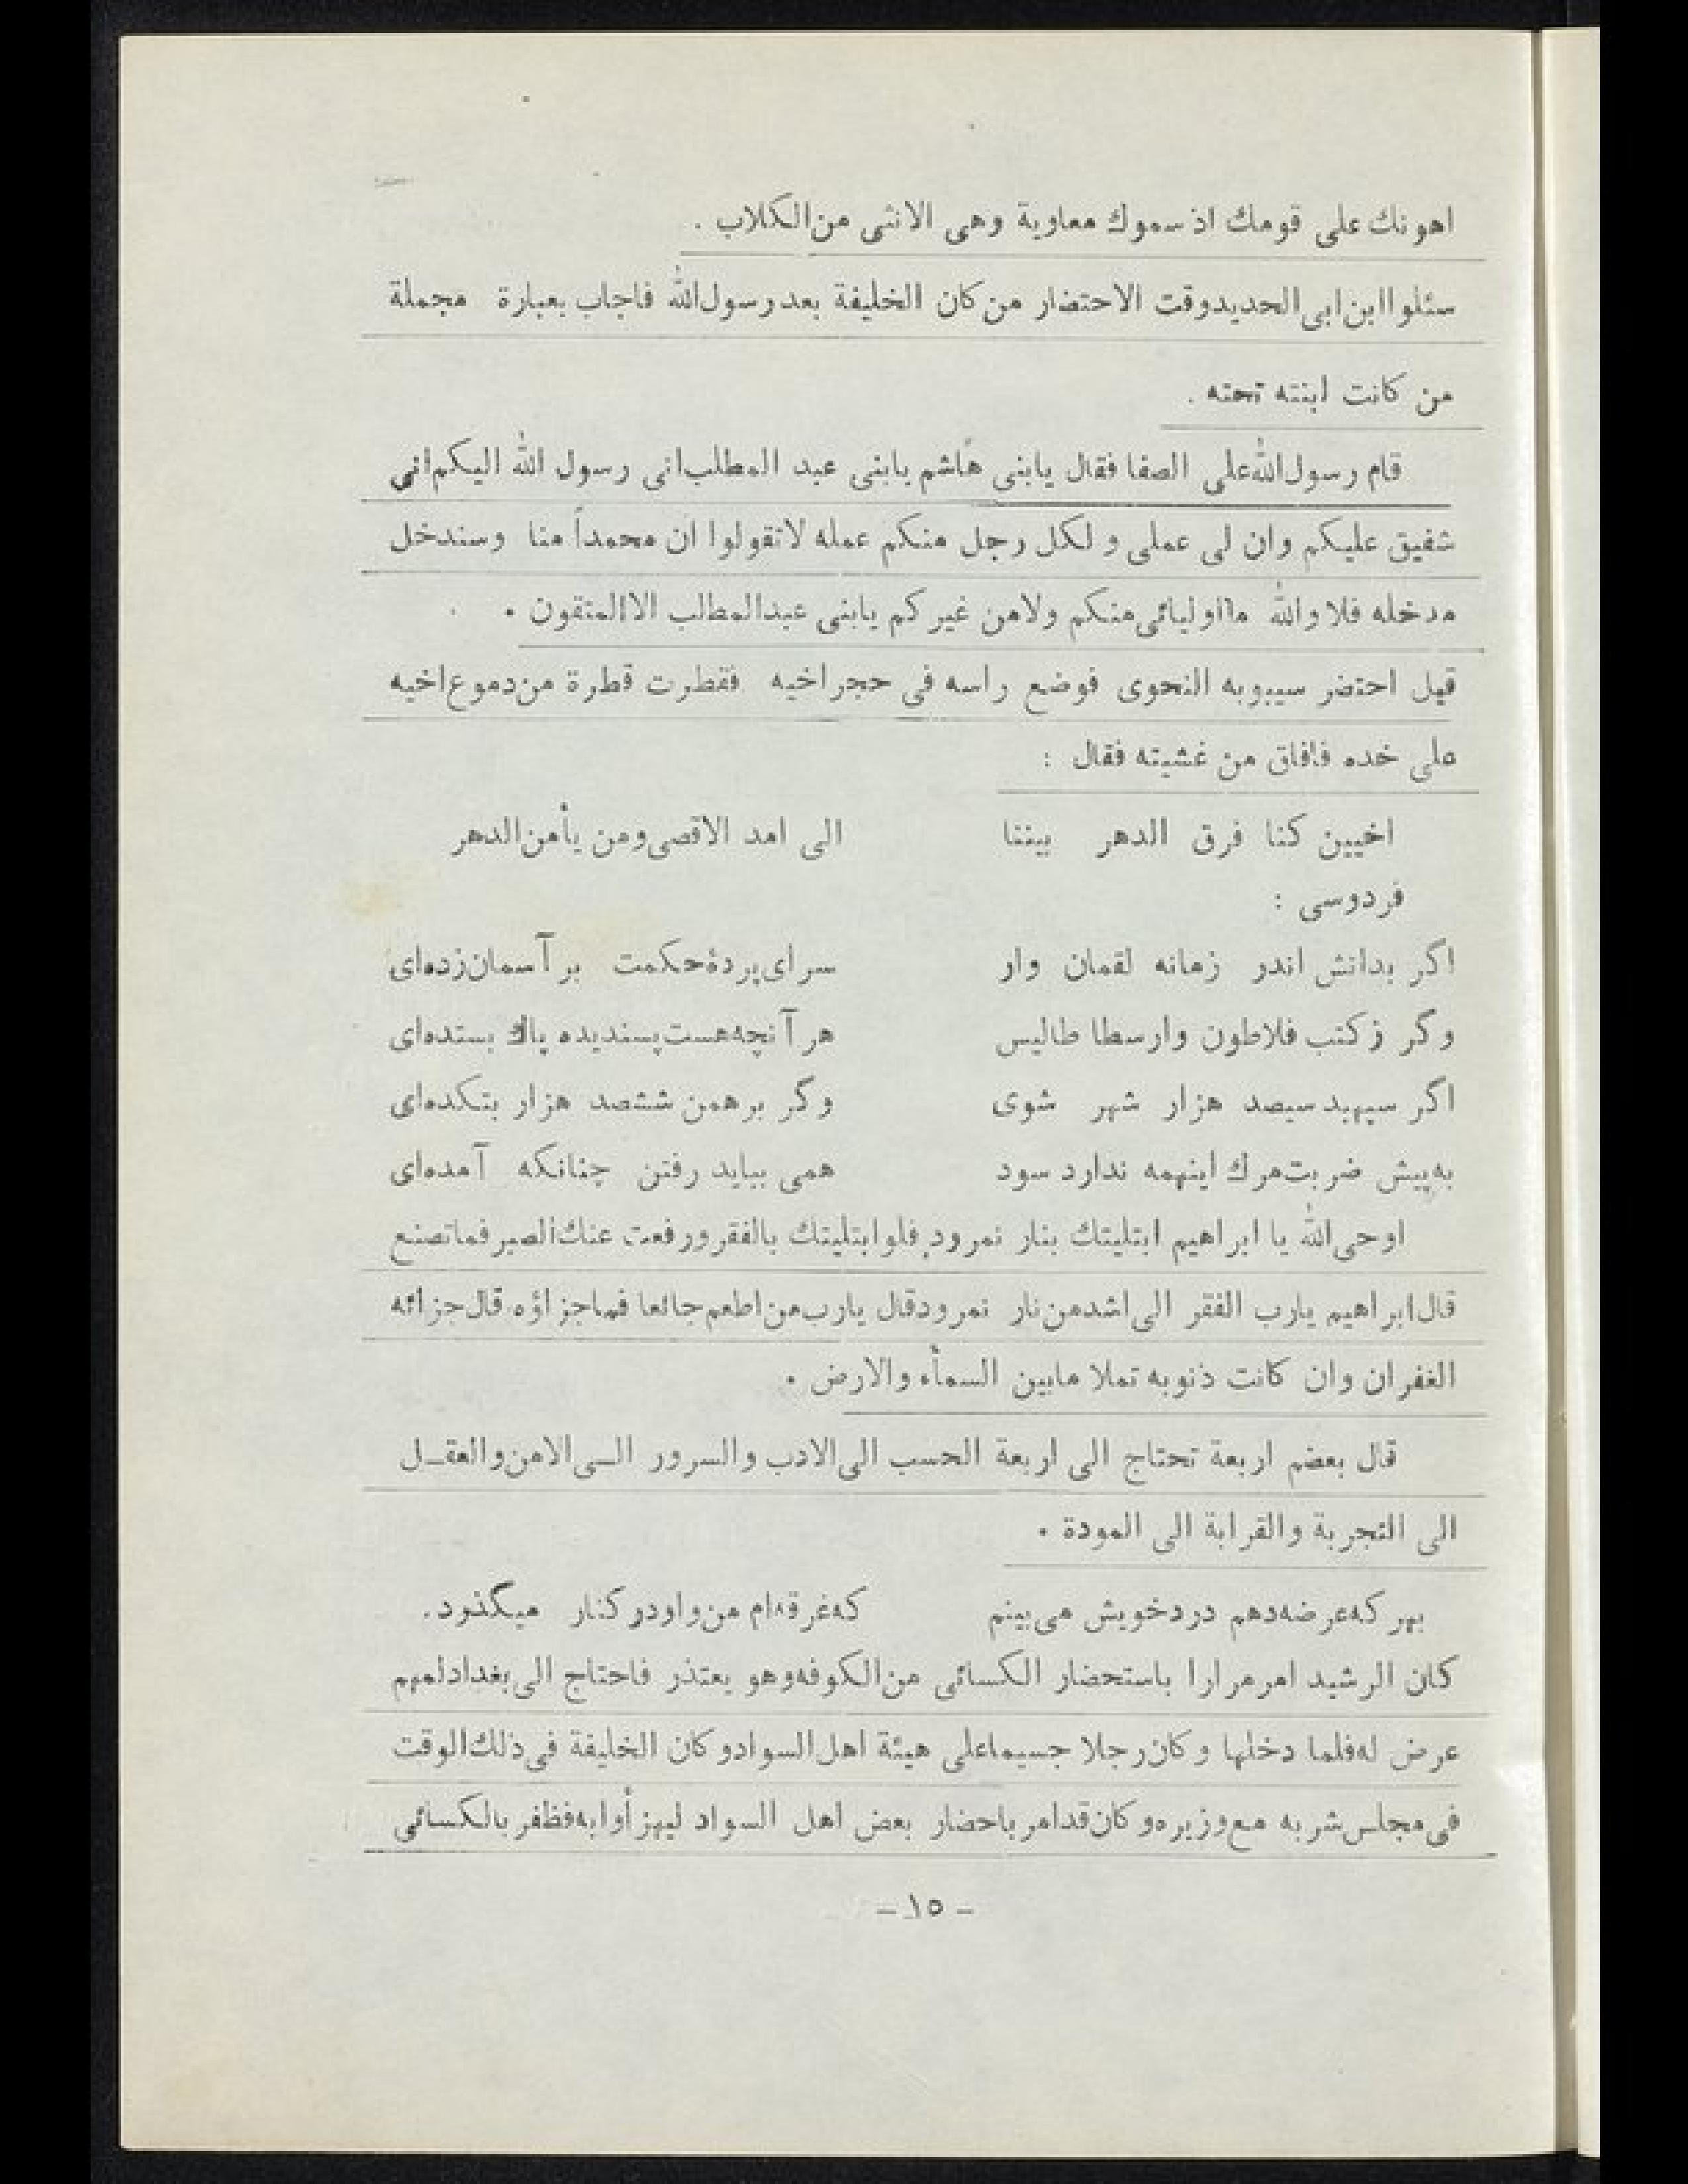 اهونك على قومك اذ سموك معاوية وهى الانثى من الكلاب .
سئلوا ابن ابى الحديد وقت الاحتضار من كان الخليفة بعد رسول الله فاجاب بعبارة مجملة
من كانت ابنته تحته .
قام رسول الله على الصفا فقال يابنى هاشم يابنى عبد المطلب انى رسول الله اليكم انى
شفيق عليكم وان لى عملى و لكل رجل منكم عمله لاتقولوا ان محمداً منا وسندخل
مدخله فلا والله ما اوليائى منكم ولامن غيركم يابنى عبدالمطالب الا المتقون .
قيل احتضر سيبويه النحوى فوضع راسه فى حجر اخيه فقطرت قطرة من دموع اخيه
على خده فافاق من غشيته فقال :
اخيين كنا فرق الدهر بيننا الى امد الاقصى ومن يأمن الدهر
فردوسى :
اگر بدانش اندر زمانه لقمان وار سراى پردۀ حكمت بر آسمان زده‌اى
وگر ز كتب فلاطون وارسطا طاليس هر آنچه هست پسنديده پاك بستده‌اى
اگر سپهبد سيصد هزار شهر شوى وگر برهمن ششصد هزار بتكده‌اى
به پيش ضربت مرك اينهمه ندارد سود همى ببايد رفتن چنانكه آمده‌اى
اوحى الله يا ابراهيم ابتليتك بنار نمرود فلو ابتليتك بالفقر ورفعت عنك الصبر فماتصنع
قال ابراهيم يارب الفقر الى اشد من نار نمرود قال يارب من اطعم جائعا فما جزاؤه قال جزائه
الغفران وان كانت ذنوبه تملا مابين السمأء والارض .
قال بعضم اربعة تحتاج الى اربعة الحسب الى الادب والسرور الـى الامن والعقـل
الى التجربة والقرابة الى المودة .
بهر كه عرضه دهم درد خويش مى بينم كه غرقه‌ام من و اودر كنار ميگذرد.
كان الرشيد امر مرارا باستحضار الكسائى من الكوفه وهو يعتذر فاحتاج الى بغداد لمهم
عرض له فلما دخلها وكان رجلا جسيما على هيئة اهل السواد وكان الخليفة فى ذلك الوقت
فى مجلس شربه مع وزيره وكان قد امر باحضار بعض اهل السواد ليهزأوا به فظفر بالكسائى
- ١٥ -